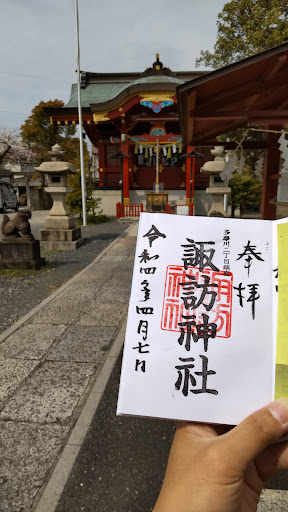 奉拝
多摩川二丁目
諏訪神社
令和四年四月七日